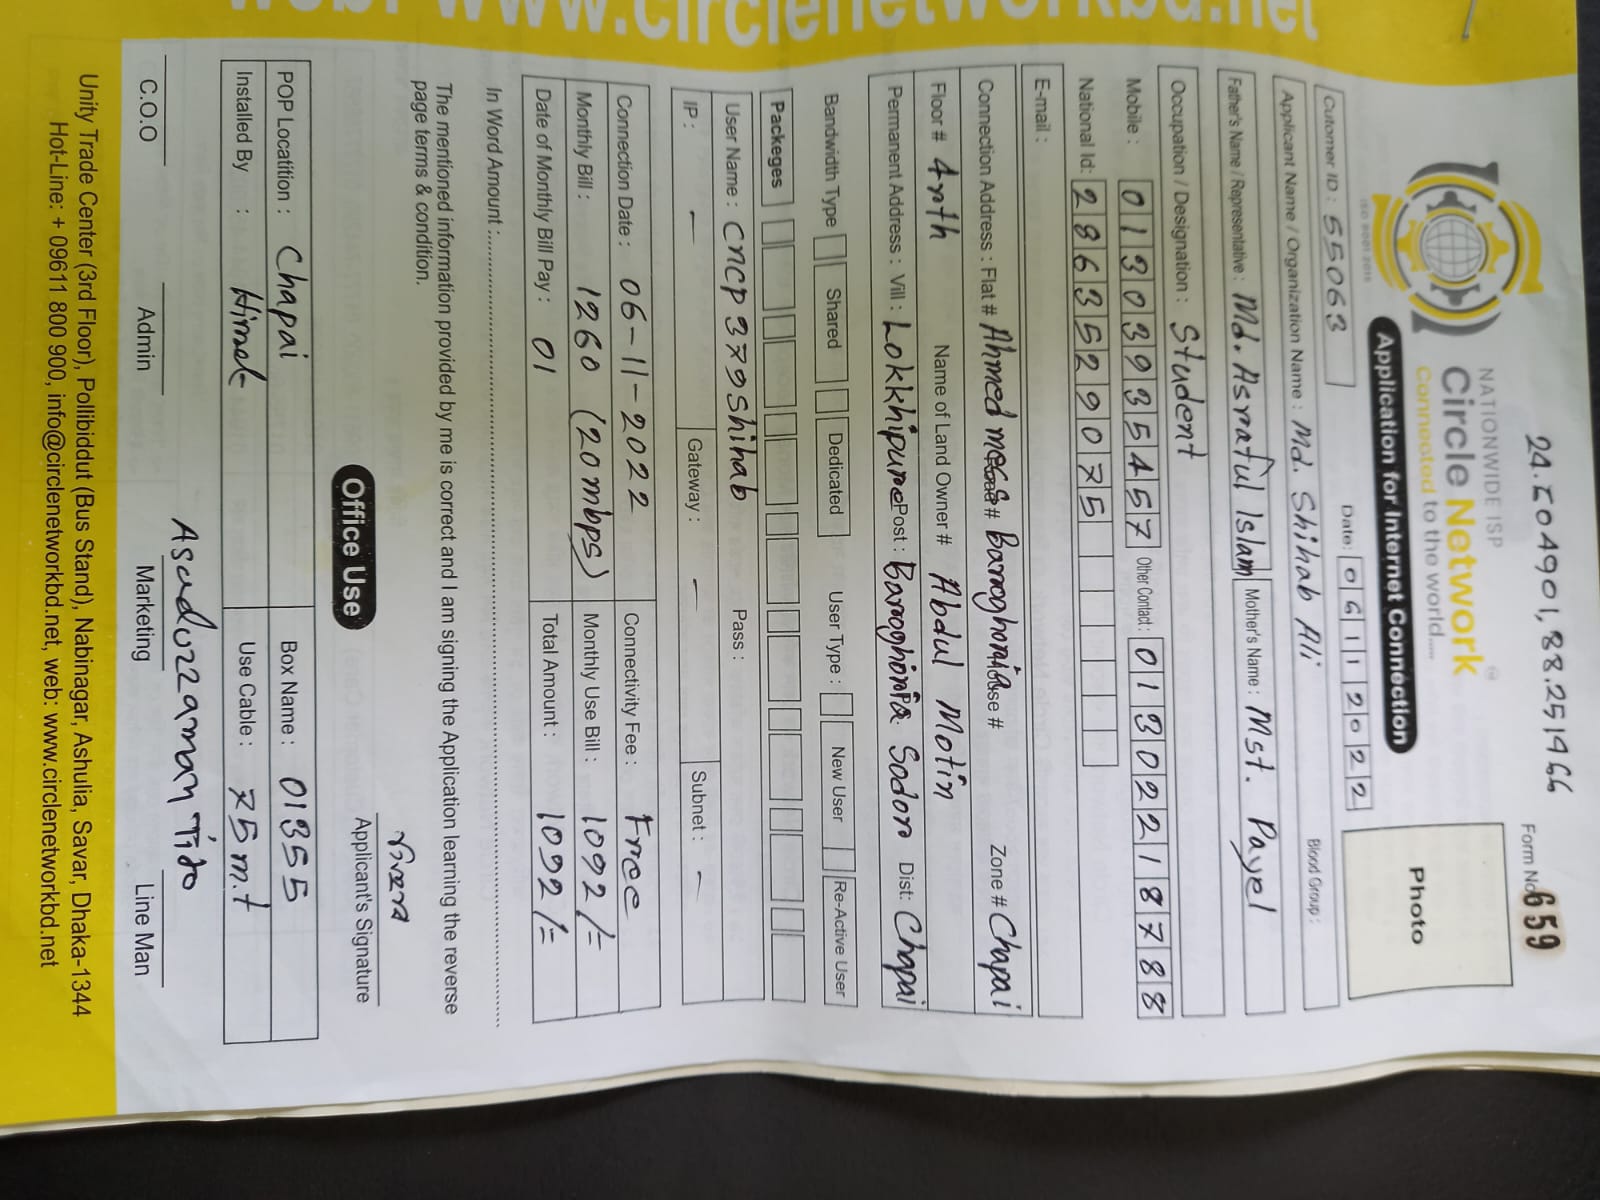 24.604901,88.251966
Form No 659
ISO 9001 2015
NATIONWIDE ISP
Circle Network
Connected to the world....
Application for Internet Connection
Photo
Cutomer ID : 55063 Date: 06112022
Applicant Name / Organization Name : Md. Shihab Alli Blood Group :
Father's Name / Representative : Md. Asraful Islam Mother's Name : Mst. Payel
Occupation / Designation : Student
Mobile : 01303935457 Other Contact : 01302218788
National Id: 2863529075
E-mail :
Connection Address : Flat # Ahmed mess # Baroghoria House # Zone # Chapai
Floor # 4nth Name of Land Owner # Abdul Motin
Permanent Address : Vill : Lokkhipure Post : Baroghoria P.S: Sodor Dist: Chapai
Bandwidth Type Shared Dedicated User Type : New User Re-Active User
Packeges
User Name : cncp379shihab Pass :
IP : — Gateway : — Subnet : —
Connection Date : 06-11-2022 Connectivity Fee : Free
Monthly Bill : 1260 (20mbps) Monthly Use Bill : 1092/=
Date of Monthly Bill Pay : 01 Total Amount : 1092/=
In Word Amount :
The mentioned information provided by me is correct and I am signing the Application learning the reverse
page terms & condition.
Applicant's Signature
Office Use
POP Locatition : Chapai Box Name : 01355
Installed By : Himel Use Cable : 75m.t
Asaduzzaman Tito
C.O.O Admin Marketing Line Man
Unity Trade Center (3rd Floor), Pollibiddut (Bus Stand), Nabinagar, Ashulia, Savar, Dhaka-1344
Hot-Line: + 09611 800 900, info@circlenetworkbd.net, web: www.circlenetworkbd.net
web: www.circlenetworkbd.net